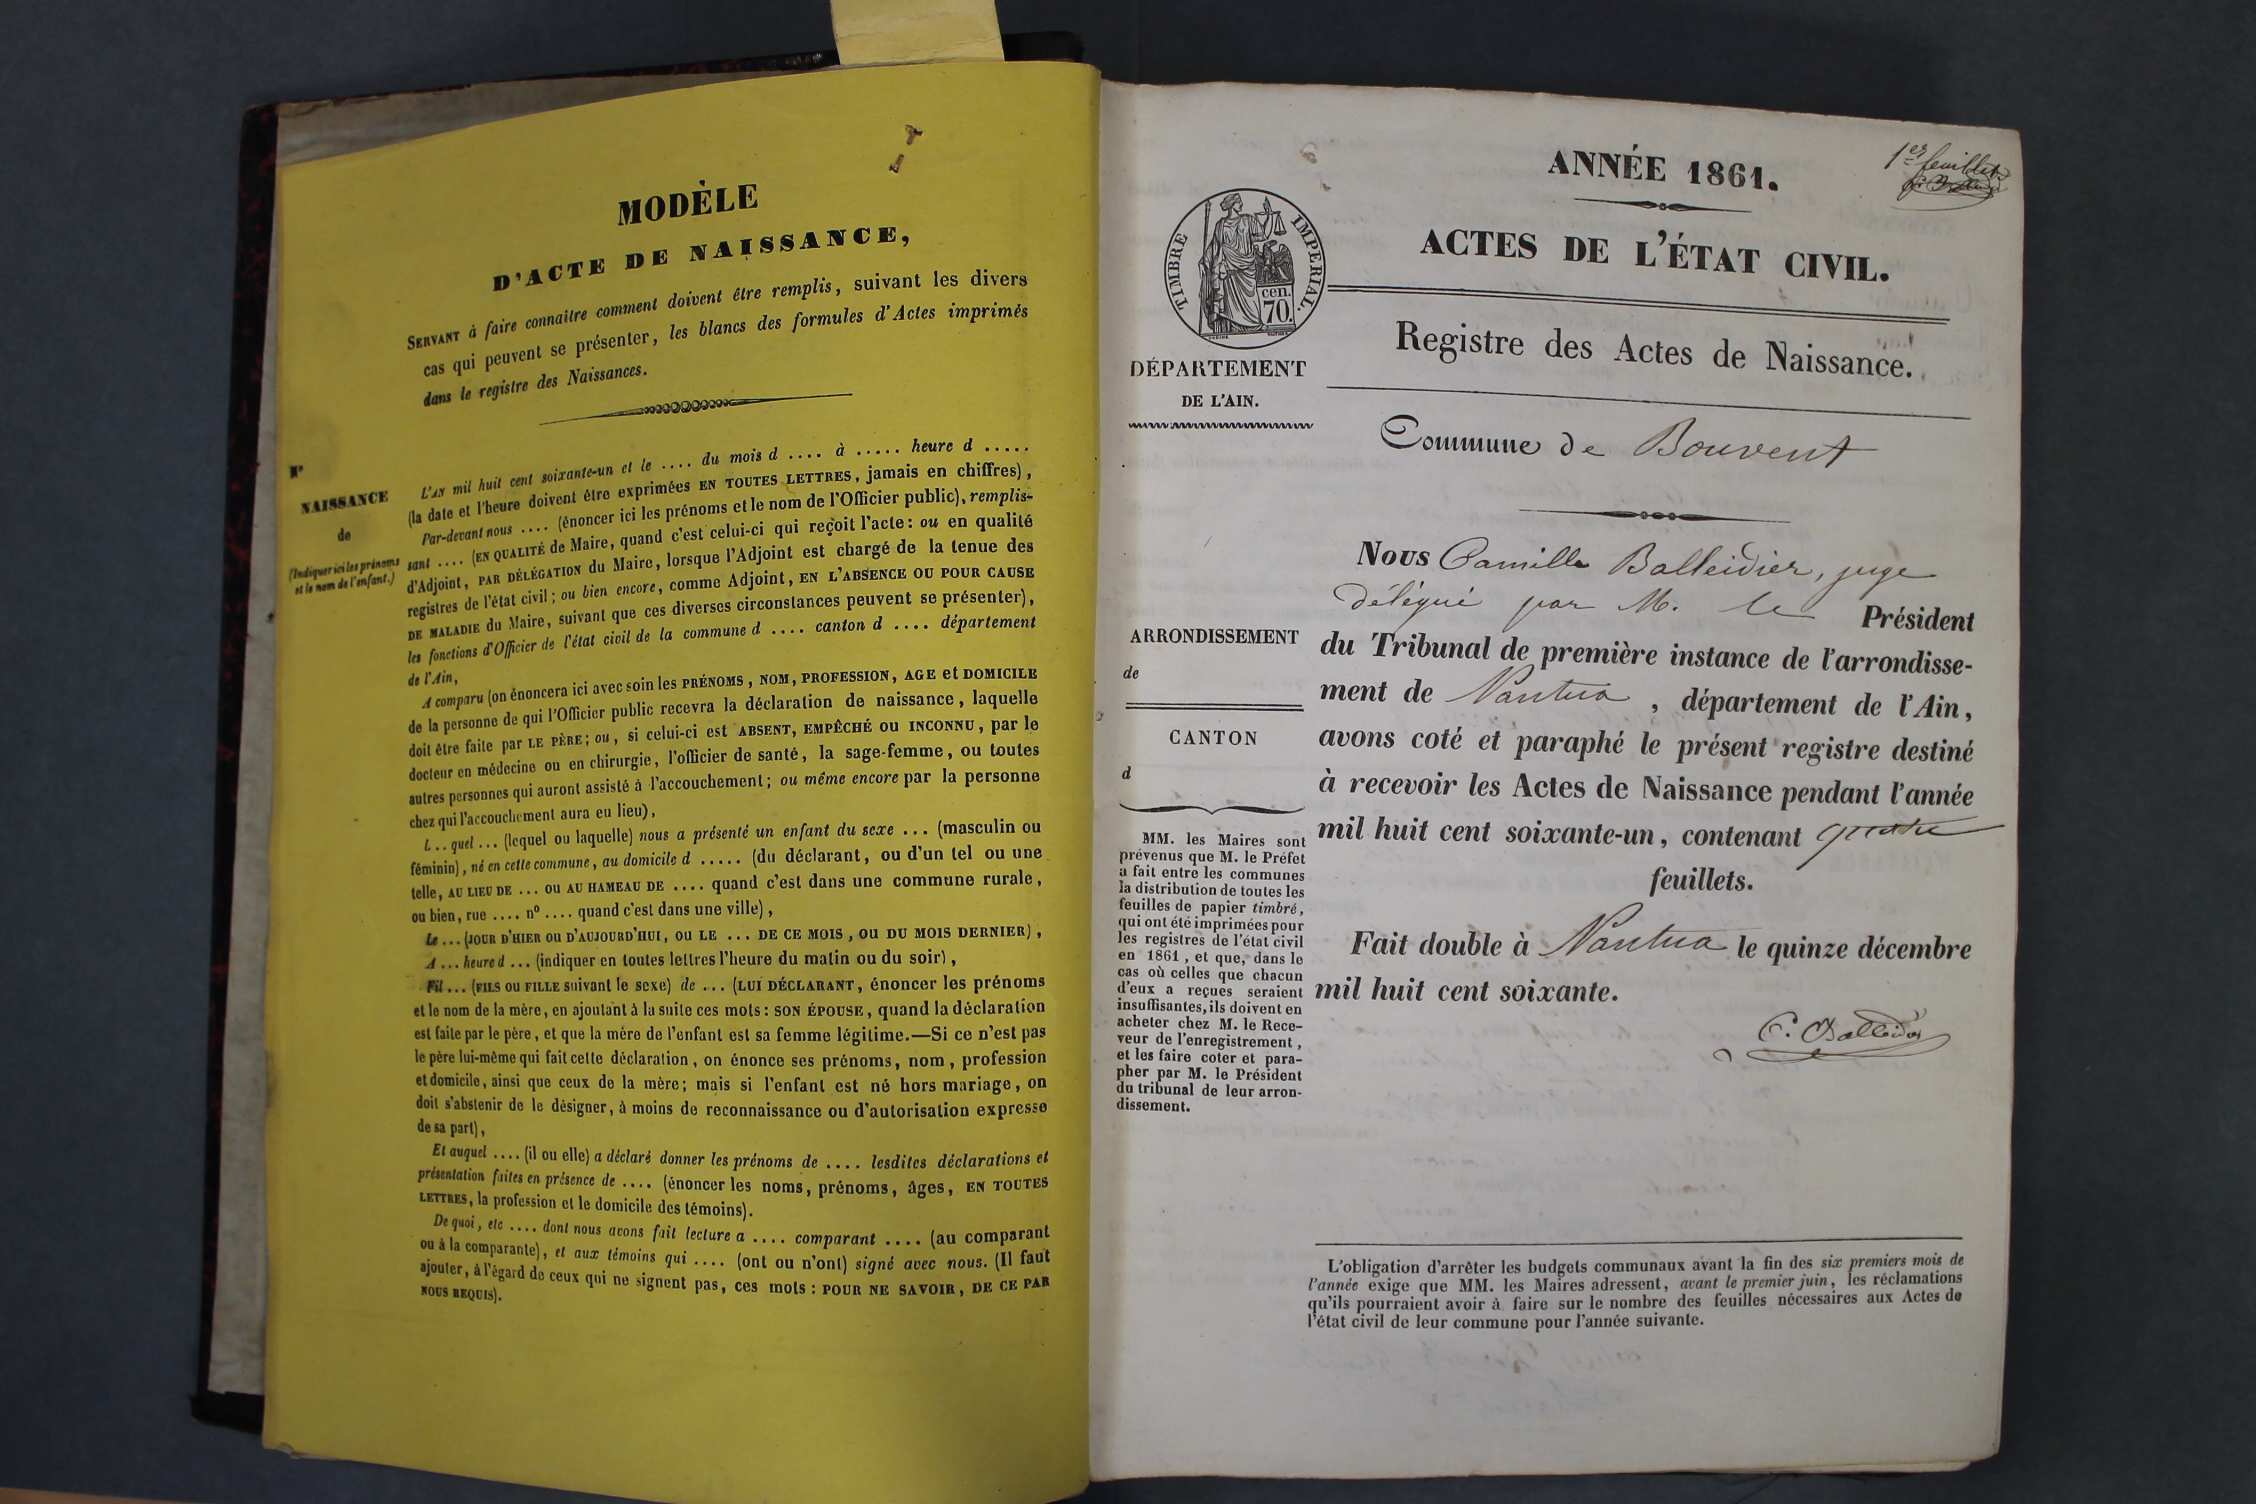 MODÈLE
D'ACTE DE NAISSANCE,
SERVANT à faire connaître comment doivent être remplis, suivant les divers
cas qui peuvent se présenter, les blancs des formules d'Actes imprimés
dans le registre des Naissances.
N°
NAISSANCE
de
(Indiquer ici les prénoms
et le nom de l'enfant.)
L'AN mil huit cent soixante-un et le .... du mois d .... à ..... heure d .....
(la date et l'heure doivent être exprimées EN TOUTES LETTRES, jamais en chiffres),
Par-devant nous .... (énoncer ici les prénoms et le nom de l'Officier public), remplis-
sant .... (EN QUALITÉ de Maire, quand c'est celui-ci qui reçoit l'acte: ou en qualité
d'Adjoint, PAR DÉLÉGATION du Maire, lorsque l'Adjoint est chargé de la tenue des
registres de l'état civil; ou bien encore, comme Adjoint, EN L'ABSENCE OU POUR CAUSE
DE MALADIE du Maire, suivant que ces diverses circonstances peuvent se présenter),
les fonctions d'Officier de l'état civil de la commune d .... canton d .... département
de l'Ain,
A comparu (on énoncera ici avec soin les PRÉNOMS, NOM, PROFESSION, AGE et DOMICILE
de la personne de qui l'Officier public recevra la déclaration de naissance, laquelle
doit être faite par LE PÈRE; ou, si celui-ci est ABSENT, EMPÊCHÉ OU INCONNU, par le
docteur en médecine ou en chirurgie, l'officier de santé, la sage-femme, ou toutes
autres personnes qui auront assisté à l'accouchement; ou même encore par la personne
chez qui l'accouchement aura eu lieu),
L..quel... (lequel ou laquelle) nous a présenté un enfant du sexe ... (masculin ou
féminin), né en cette commune, au domicile d ..... (du déclarant, ou d'un tel ou une
telle, AU LIEU DE ... OU AU HAMEAU DE .... quand c'est dans une commune rurale,
ou bien, rue .... n° .... quand c'est dans une ville),
Le ... (JOUR D'HIER OU D'AUJOURD'HUI, OU LE ... DE CE MOIS, OU DU MOIS DERNIER),
A ... heure d ... (indiquer en toutes lettres l'heure du matin ou du soir),
Fil ... (FILS OU FILLE suivant le sexe) de ... (LUI DÉCLARANT, énoncer les prénoms
et le nom de la mère, en ajoutant à la suite ces mots: SON ÉPOUSE, quand la déclaration
est faite par le père, et que la mère de l'enfant est sa femme légitime.—Si ce n'est pas
le père lui-même qui fait cette déclaration, on énonce ses prénoms, nom, profession
et domicile, ainsi que ceux de la mère; mais si l'enfant est né hors mariage, on
doit s'abstenir de le désigner, à moins de reconnaissance ou d'autorisation expresse
de sa part),
Et auquel .... (il ou elle) a déclaré donner les prénoms de .... lesdites déclarations et
présentation faites en présence de .... (énoncer les noms, prénoms, âges, EN TOUTES
LETTRES, la profession et le domicile des témoins).
De quoi, etc .... dont nous avons fait lecture a .... comparant .... (au comparant
ou à la comparante), et aux témoins qui .... (ont ou n'ont) signé avec nous. (Il faut
ajouter, à l'égard de ceux qui ne signent pas, ces mots: POUR NE SAVOIR, DE CE PAR
NOUS REQUIS).
1er feuillet
ANNÉE 1861.
ACTES DE L'ÉTAT CIVIL.
TIMBRE IMPERIAL.
cen.
70.
DÉPARTEMENT
DE L'AIN.
Registre des Actes de Naissance.
Commune de Bouvent
ARRONDISSEMENT
de
CANTON
d
MM. les Maires sont
prévenus que M. le Préfet
a fait entre les communes
la distribution de toutes les
feuilles de papier timbré,
qui ont été imprimées pour
les registres de l'état civil
en 1861, et que, dans le
cas où celles que chacun
d'eux a reçues seraient
insuffisantes, ils doivent en
acheter chez M. le Rece-
veur de l'enregistrement,
et les faire coter et para-
pher par M. le Président
du tribunal de leur arron-
dissement.
Nous Camille Balleidier, juge
délégué par M. le Président
du Tribunal de première instance de l'arrondisse-
ment de Nantua, département de l'Ain,
avons coté et paraphé le présent registre destiné
à recevoir les Actes de Naissance pendant l'année
mil huit cent soixante-un, contenant quatre
feuillets.
Fait double à Nantua le quinze décembre
mil huit cent soixante.
C. Balleidier
L'obligation d'arrêter les budgets communaux avant la fin des six premiers mois de
l'année exige que MM. les Maires adressent, avant le premier juin, les réclamations
qu'ils pourraient avoir à faire sur le nombre des feuilles nécessaires aux Actes de
l'état civil de leur commune pour l'année suivante.